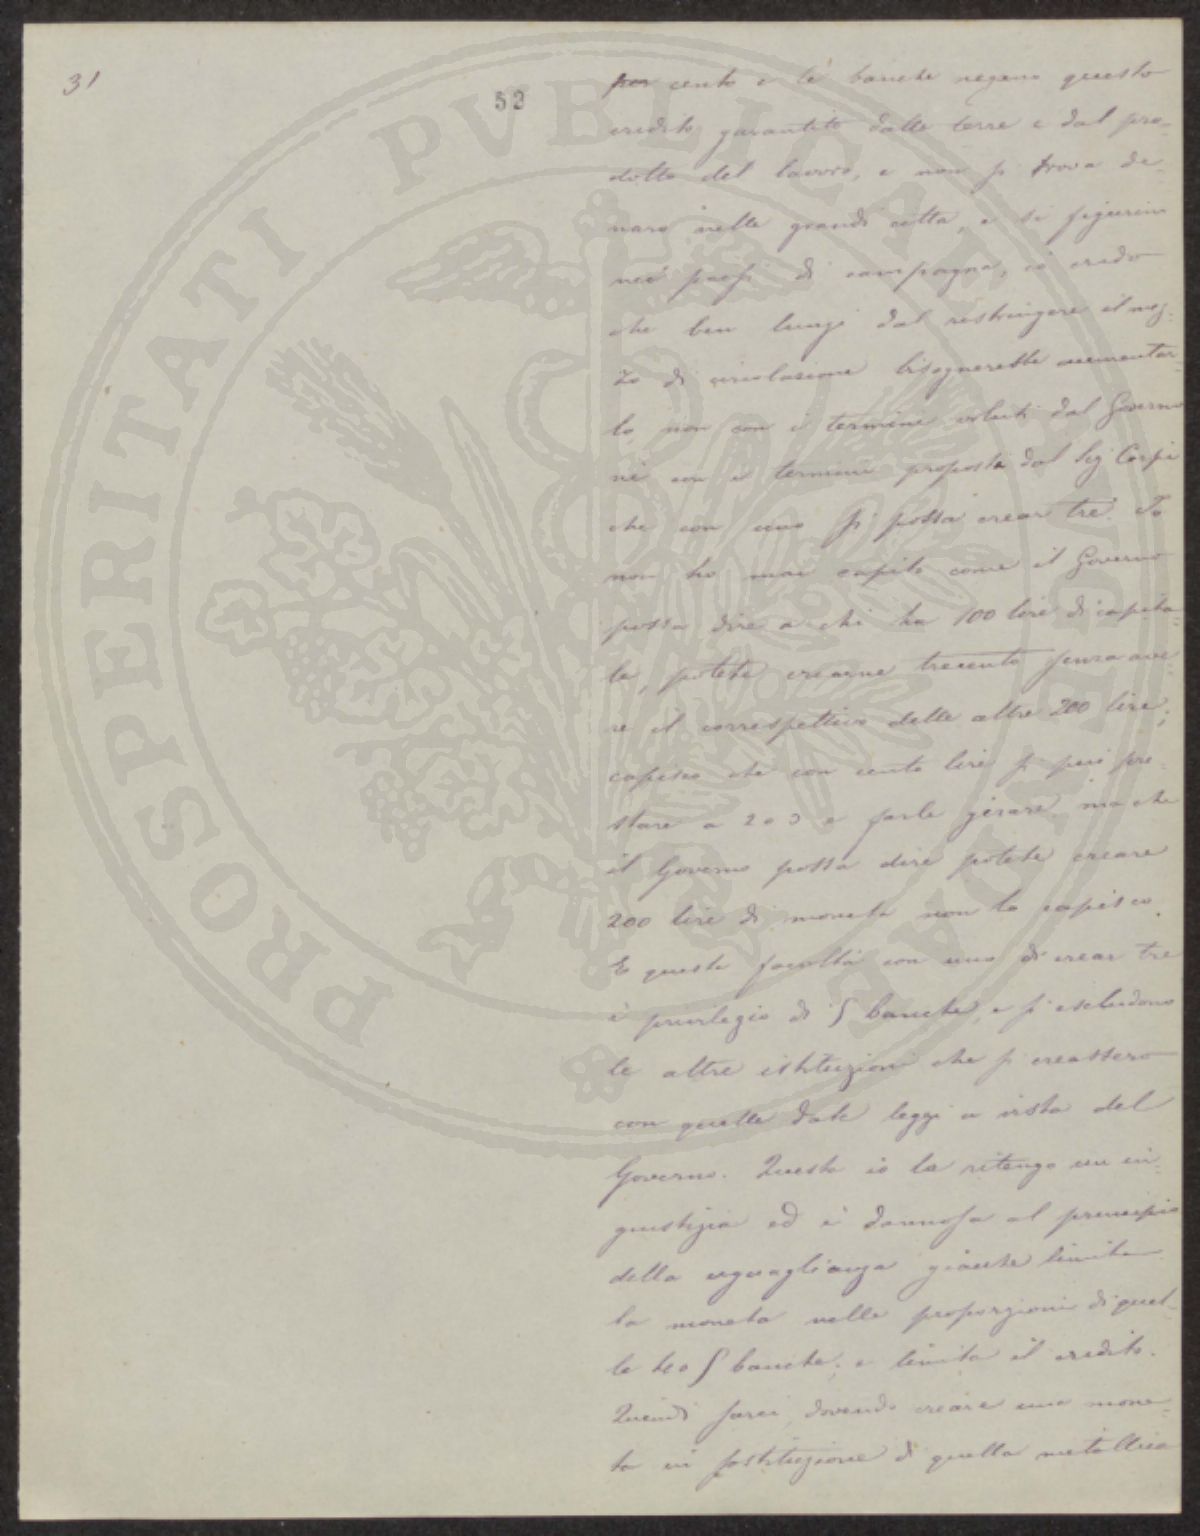 31
52
per cento e le banche negano questo
credito garantito dalle terre e dal pro-
dotto del lavoro, e non si trova de-
naro nelle grandi città, e si figurino
nei paesi di campagna, io credo
che ben lungi dal restringere il mez-
zo di circolazione bisognerebbe aumentar-
lo, non con i termini voluti dal Governo
nè con i termini proposti dal Sig Carpi
che con uno si possa crear tre. Io
non ho mai capito come il Governo
possa dire a chi ha 100 lire di capita-
le, potete crearne trecento senza ave-
re il correspettivo delle altre 200 lire;
capisco che con cento lire si può pre-
stare a 203 e farle girare, ma che
il Governo possa dire potete creare
200 lire di moneta non lo capisco.
E questa facoltà con uno di crear tre
è privilegio di 5 banche, e si escludono
le altre istituzioni che si creassero
con quelle date leggi a vista del
Governo. Questa io la ritengo un in-
giustizia ed è dannosa al principio
della uguaglianza giacchè limita
la moneta nelle proporzioni di quel-
le 5 banche; e limita il credito.
Quindi farei, dovendo creare una mone-
ta in sostituzione di quella metallica
PROSPERITATI PVBLICAE